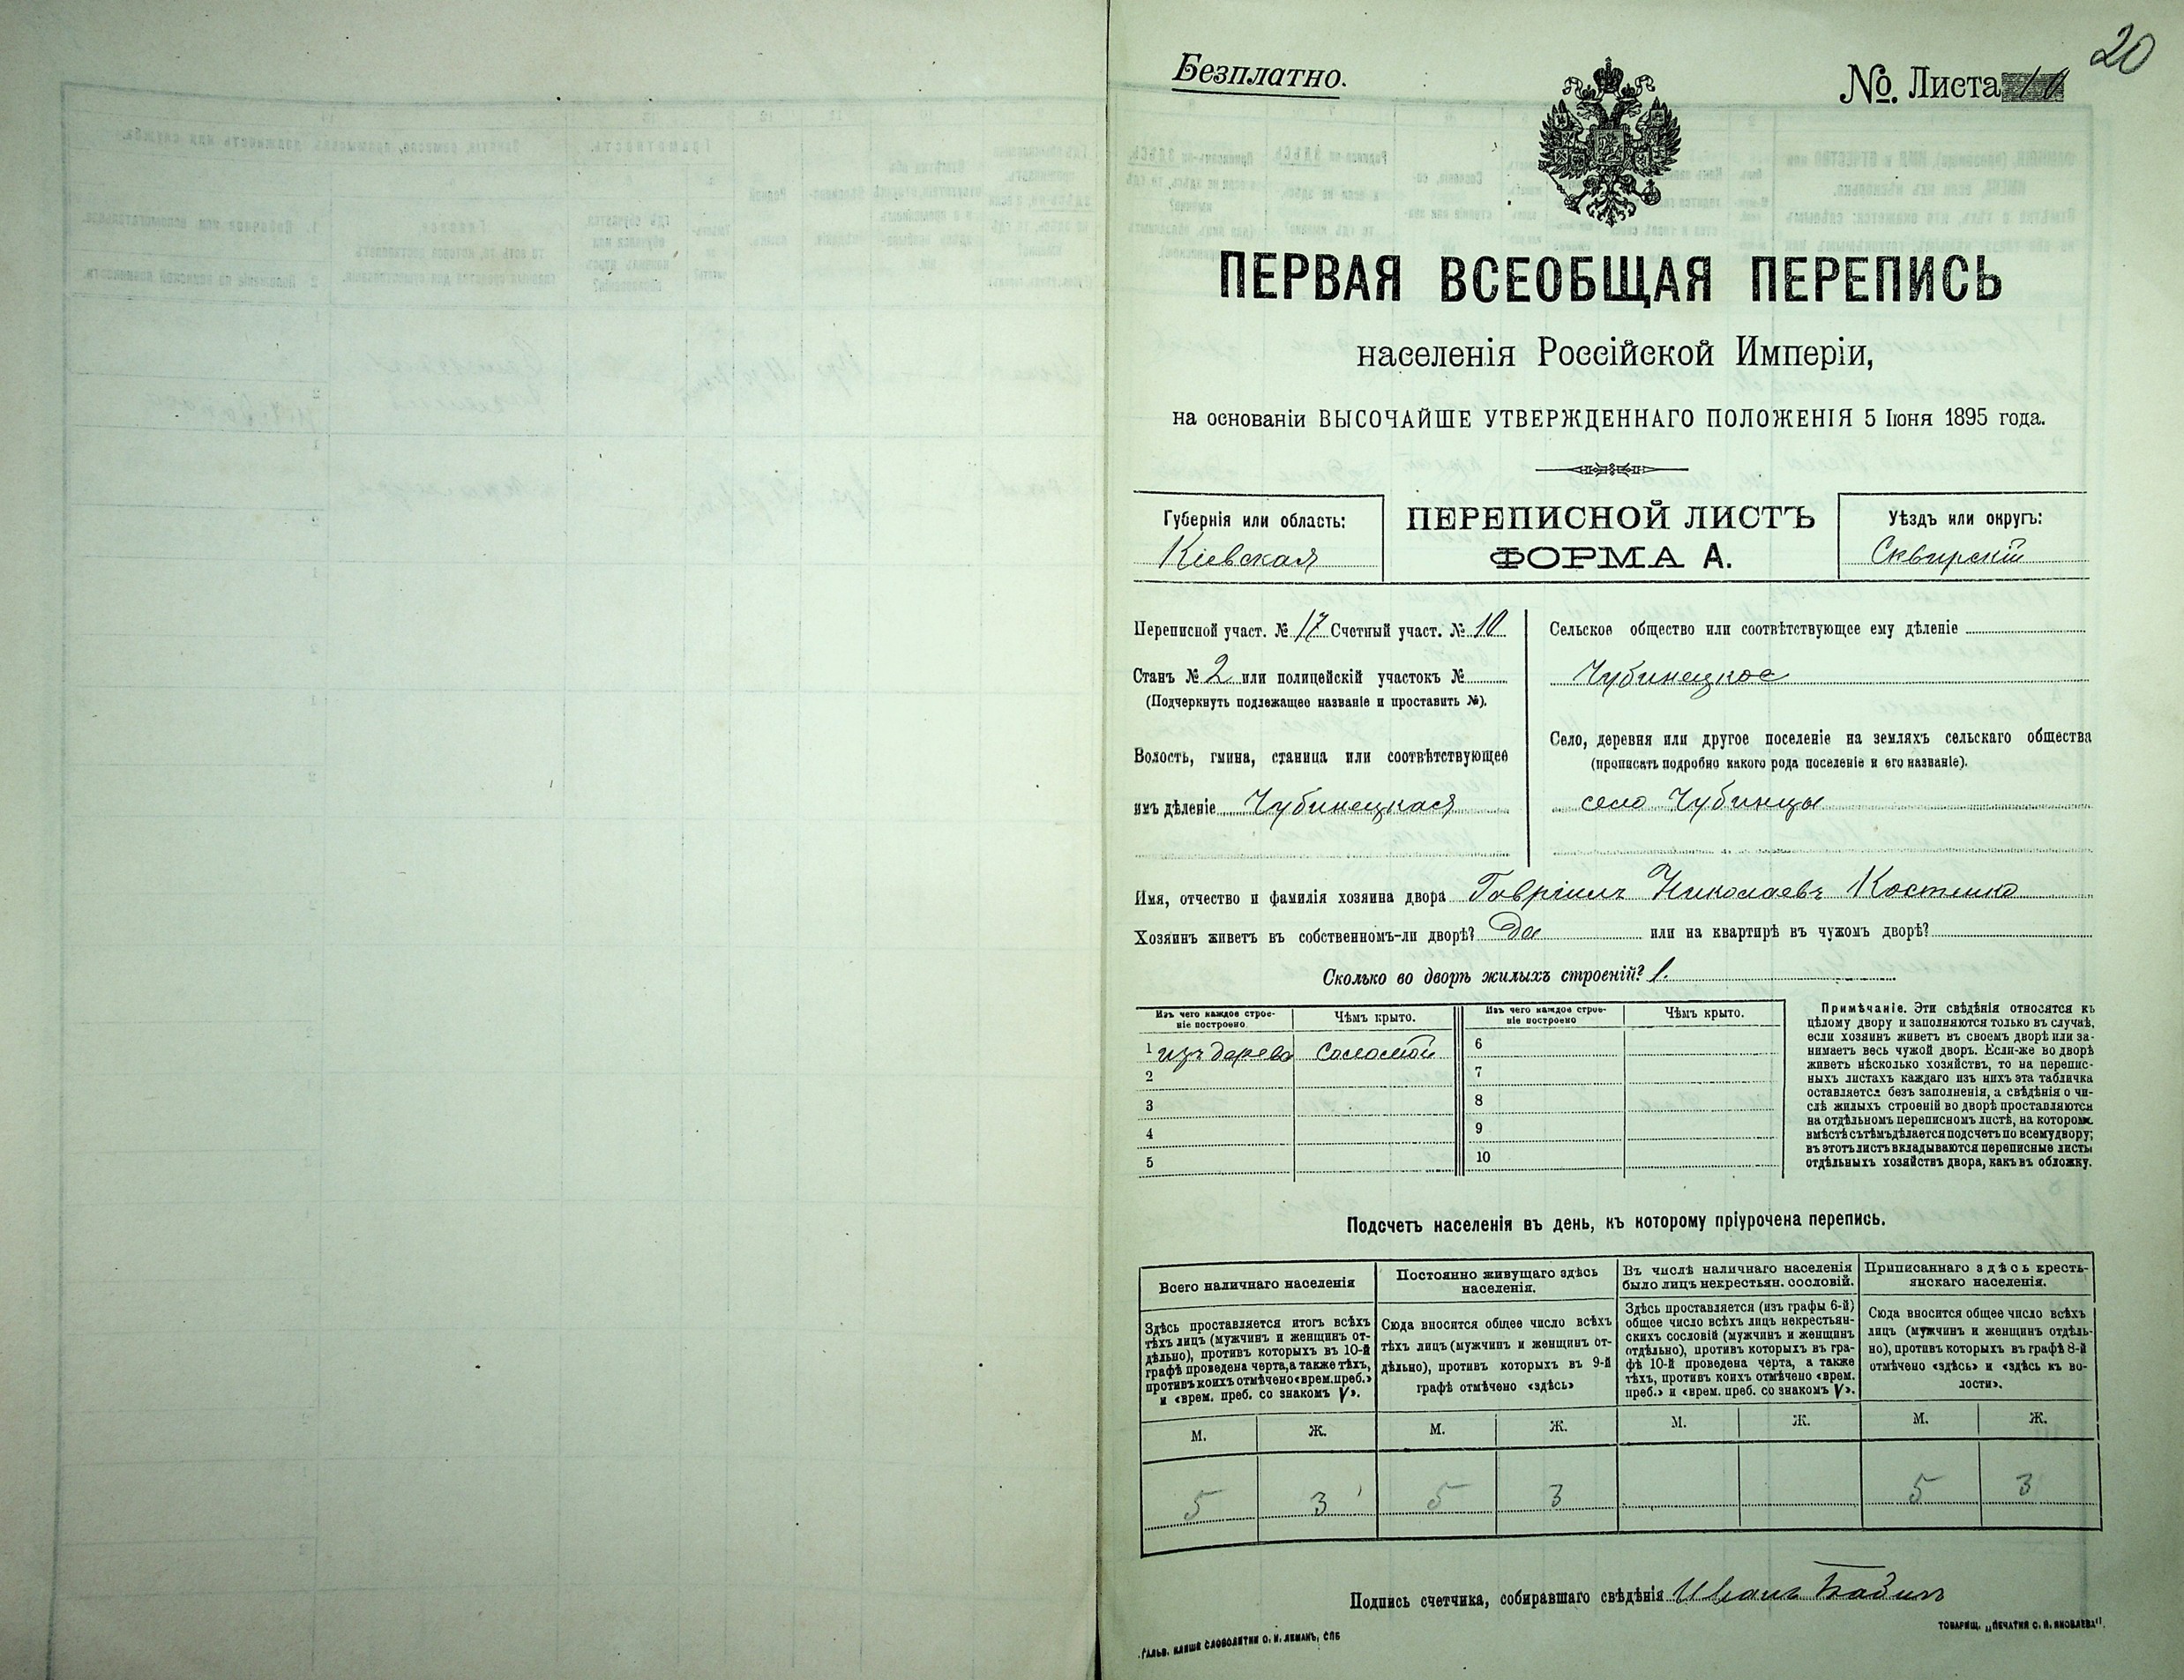 20
Безплатно.
№ Листа
ПЕРВАЯ ВСЕОБЩАЯ ПЕРЕПИСЬ
населенія Россійской Имперіи,
на основаніи ВЫСОЧАЙШЕ УТВЕРЖДЕННАГО ПОЛОЖЕНІЯ 5 Іюня 1895 года.
Губернія или область:
Кіевская
ПЕРЕПИСНОЙ ЛИСТЪ
ФОРМА А.
Уѣздъ или округъ:
Сквирскій
Переписной участ. № 17 Счетный участ. № 10
Станъ № 2 или полицейскій участокъ №
(Подчеркнуть подлежащее названіе и проставить №).
Волость, гмина, станица или соотвѣтствующее
имъ дѣленіе Чубинецкая
Сельское общество или соотвѣтствующее ему дѣленіе
Чубинецкое
Село, деревня или другое поселеніе на земляхъ сельскаго общества
(прописать подробно какого рода поселеніе и его названіе).
село Чубинцы
Имя, отчество и фамилія хозяина двора Гавріилъ Николаевъ Костенко
Хозяинъ живетъ въ собственномъ-ли дворѣ? Да или на квартирѣ въ чужомъ дворѣ?
Сколько во дворѣ жилыхъ строеній? 1.
Изъ чего каждое строе-
ніе построено
Чѣмъ крыто.
Изъ чего каждое строе-
ніе построено
Чѣмъ крыто.
1 изъ дерева соломой 6
2 7
3 8
4 9
5 10
Примѣчаніе. Эти свѣдѣнія относятся къ
цѣлому двору и заполняются только въ случаѣ,
если хозяинъ живетъ въ своемъ дворѣ или за-
нимаетъ весь чужой дворъ. Если-же во дворѣ
живетъ нѣсколько хозяйствъ, то на перепис-
ныхъ листахъ каждаго изъ нихъ эта табличка
оставляется безъ заполненія, а свѣдѣнія о чи-
слѣ жилыхъ строеній во дворѣ проставляются
на отдѣльномъ переписномъ листѣ, на которомъ
вмѣстѣ съ тѣмъ дѣлается подсчетъ по всему двору;
въ этотъ листъ вкладываются переписные листы
отдѣльныхъ хозяйствъ двора, какъ въ обложку.
Подсчетъ населенія въ день, къ которому пріурочена перепись.
Всего наличнаго населенія
Здѣсь проставляется итогъ всѣхъ
тѣхъ лицъ (мужчинъ и женщинъ от-
дѣльно), противъ которыхъ въ 10-й
графѣ проведена черта, а также тѣхъ,
противъ коихъ отмѣчено «врем. преб.»
и «врем. преб. со знакомъ V».
Постоянно живущаго здѣсь
населенія.
Сюда вносится общее число всѣхъ
тѣхъ лицъ (мужчинъ и женщинъ от-
дѣльно), противъ которыхъ въ 9-й
графѣ отмѣчено «здѣсь»
Въ числѣ наличнаго населенія
было лицъ некрестьян. сословій.
Здѣсь проставляется (изъ графы 6-й)
общее число всѣхъ лицъ некрестьян-
скихъ сословій (мужчинъ и женщинъ
отдѣльно), противъ которыхъ въ гра-
фѣ 10-й проведена черта, а также
тѣхъ, противъ коихъ отмѣчено «врем.
преб.» и «врем. преб. со знакомъ V».
Приписаннаго здѣсь кресть-
янскаго населенія.
Сюда вносится общее число всѣхъ
лицъ (мужчинъ и женщинъ отдѣль-
но), противъ которыхъ въ графѣ 8-й
отмѣчено «здѣсь» и «здѣсь къ во-
лости».
М. Ж. М. Ж. М. Ж. М. Ж.
5 3 5 3 5 3
Подпись счетчика, собиравшаго свѣдѣнія Иванъ
ГАЛЬВ. КЛИШЕ СЛОВОЛИТНИ О. И. ЛЕМАНЪ, СПБ
ТОВАРИЩ. „ПЕЧАТНЯ С. П. ЯКОВЛЕВА“.